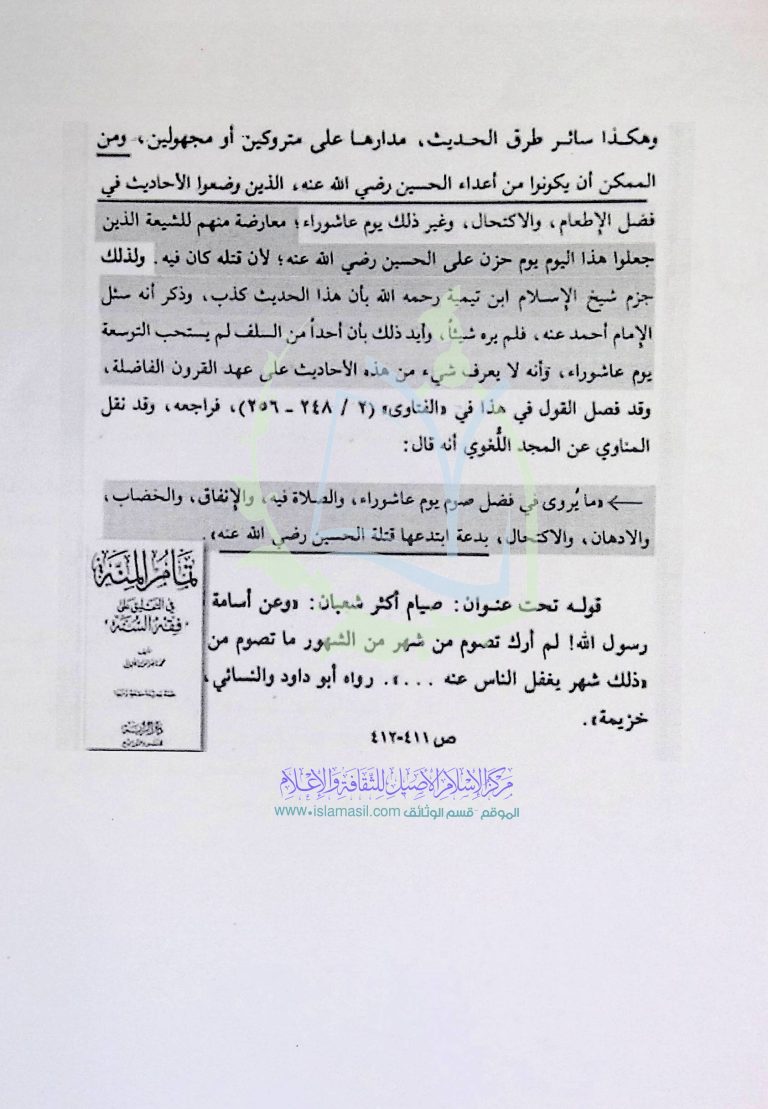 وهكذا سائر طرق الحديث، مدارها على متروكين أو مجهولين، ومن
الممكن أن يكونوا من أعداء الحسين رضي الله عنه، الذين وضعوا الأحاديث في
فضل الإطعام، والاكتحال، وغير ذلك يوم عاشوراء؛ معارضة منهم للشيعة الذين
جعلوا هذا اليوم يوم حزن على الحسين رضي الله عنه؛ لأن قتله كان فيه. ولذلك
جزم شيخ الإسلام ابن تيمية رحمه الله بأن هذا الحديث كذب، وذكر أنه سئل
الإمام أحمد عنه، فلم يره شيئاً، وأيد ذلك بأن أحداً من السلف لم يستحب التوسعة
يوم عاشوراء، وأنه لا يعرف شيء من هذه الأحاديث على عهد القرون الفاضلة،
وقد فصل القول في هذا في «الفتاوى» (٢ / ٢٤٨ ـ ٢٥٦)، فراجعه، وقد نقل
المناوي عن المجد اللُّغوي أنه قال:
← «ما يُروى في فضل صوم يوم عاشوراء، والصلاة فيه، والإنفاق، والخضاب،
والادهان، والاكتحال، بدعة ابتدعها قتلة الحسين رضي الله عنه».
تمام المنة
في التعليق على
«فقه السنة»
قوله تحت عنوان: صيام أكثر شعبان: «وعن أسامة
رسول الله! لم أرك تصوم من شهر من الشهور ما تصوم من
«ذلك شهر يغفل الناس عنه ...». رواه أبو داود والنسائي،
خزيمة».
ص ٤١١-٤١٢
مركز الإسلام الأصيل للثقافة والإعلام
الموقع - قسم الوثائق www.islamasil.com